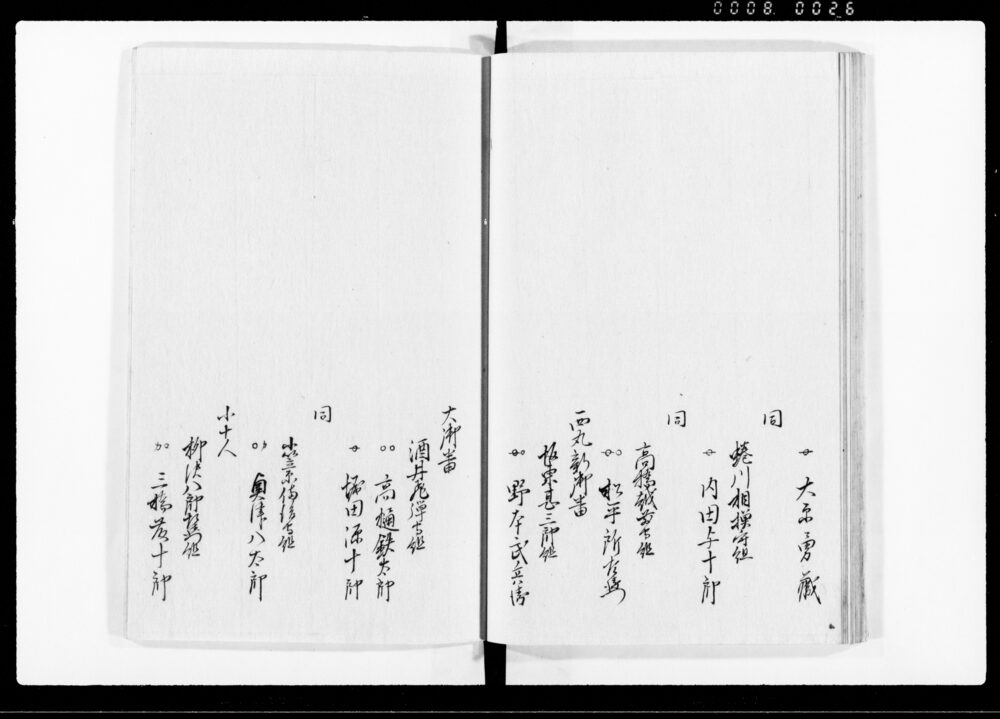 0008 0026
大原勇蔵
同
蜷川相模守組
内田与十郎
同
高橋越前守組
松平所左衛門
西丸新御番
甚三郎組
野本武兵衛
大御番
酒井飛弾守組
高樋鉄太郎
堀田源十郎
同
小笠原備後守組
奥津八太郎
小十人
柳沢八郎右衛門組
三橋藤十郎